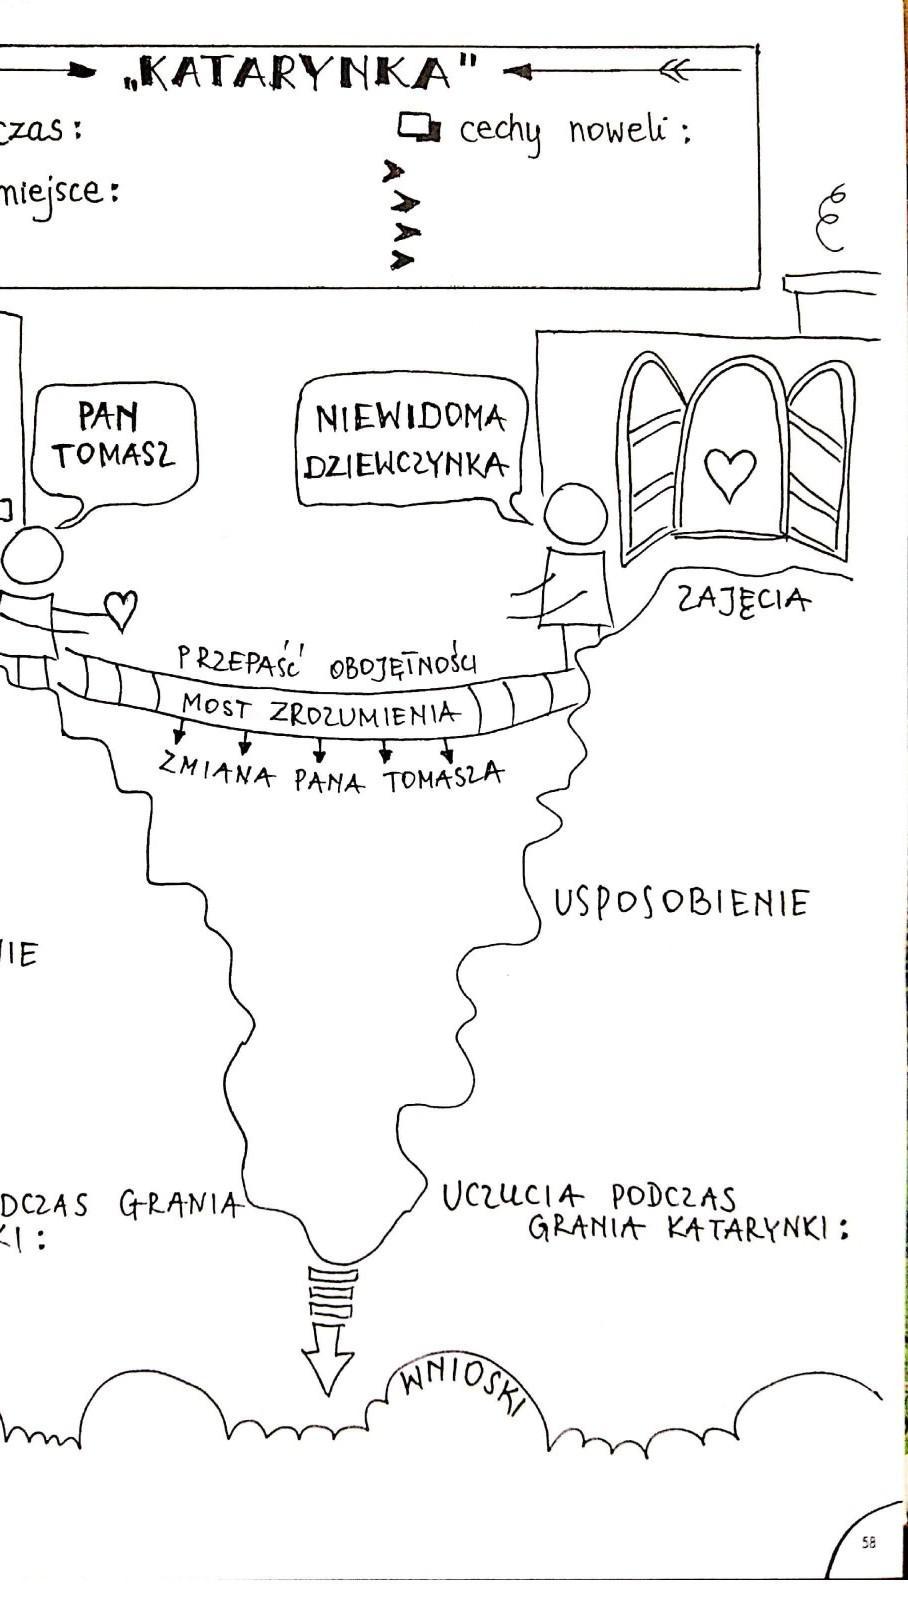 „KATARYNKA"
czas:
cechy noweli:
miejsce:
PAN
TOMASZ
NIEWIDOMA
DZIEWCZYNKA
ZAJĘCIA
PRZEPAŚĆ OBOJĘTNOŚCI
MOST ZROZUMIENIA
ZMIANA PANA TOMASZA
USPOSOBIENIE
NIE
DCZAS GRANIA
KI:
UCZUCIA PODCZAS
GRANIA KATARYNKI:
WNIOSKI
58